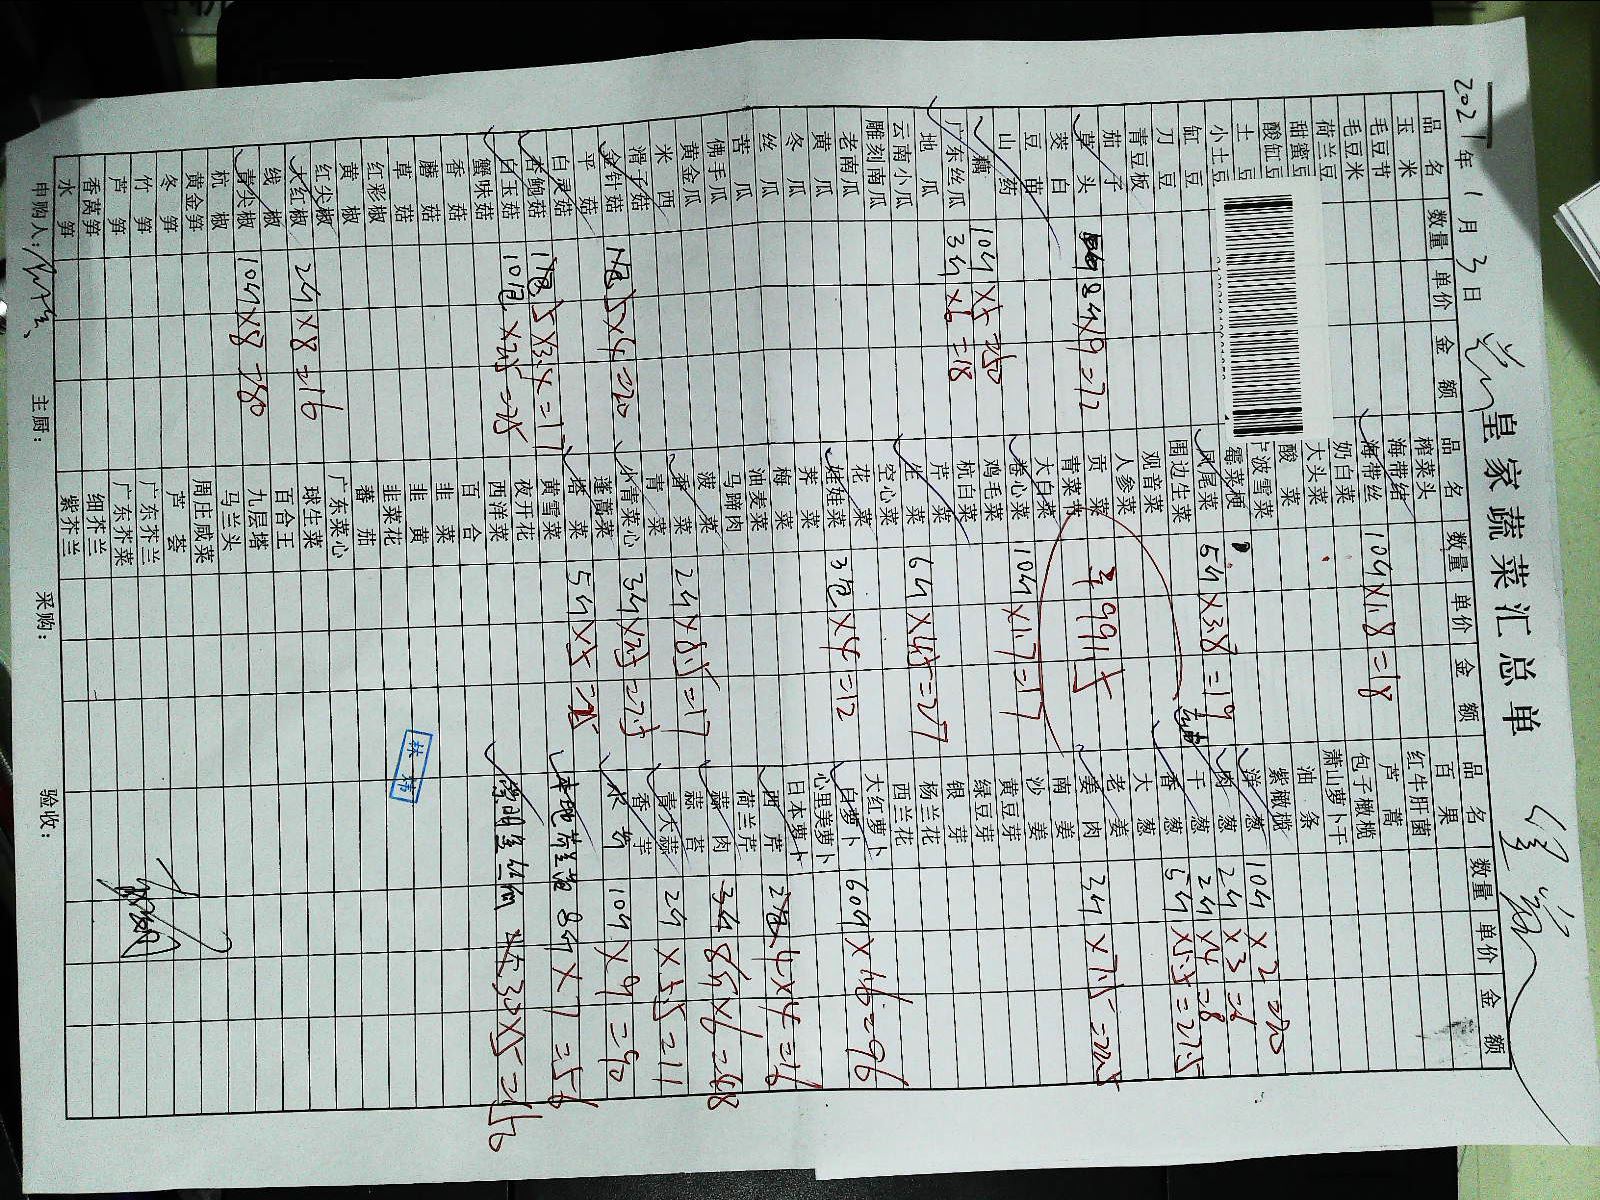 皇家蔬菜汇总单
2021年1月3日
品名 数量 单价 金额 品名 数量 单价 金额 品名 数量 单价 金额
玉米 榨菜头 百果
毛豆节 海带结 红牛肝菌
毛豆米 海带丝 10斤×1.8=18 芦蒿
荷兰豆 奶白菜 包子橄榄
甜蜜豆 大头菜 萧山萝卜干
酸缸豆 酸菜 油条
土豆 卢波雪菜 紫橄榄
小土豆 霉菜梗 洋葱 10斤×2=20
缸豆 凤尾菜 5斤×3.8=19 肉葱 2斤×3=6
刀豆 围边生菜 干葱 2斤×4=8
青豆板 观音菜 香葱 5斤×5.5=27.5
茄子 人参菜 大葱
草头 8斤×9=72 贡菜 老姜
茭白 菩菜菜 姜肉 3斤×7.5=22.5
豆苗 大白菜 南姜
山药 卷心菜 10斤×1.7=17 沙姜
藕 10斤×5=50 鸡毛菜 黄豆芽
广东丝瓜 3斤×6=18 杭白菜 绿豆芽
地瓜 芹菜 银芽
云南小瓜 生菜 6斤×4.5=27 杨兰花
雕刻南瓜 空心菜 西兰花
老南瓜 花菜 大红萝卜
黄瓜 娃娃菜 3包×4=12 白萝卜 60斤×1.6=96
冬瓜 荠菜 心里美萝卜
丝瓜 梅菜 日本萝卜
苦瓜 油麦菜 西芹 4×4=16
佛手瓜 马蹄肉 荷兰芹
黄金瓜 菠菜 蒜肉 8斤×6=48
米西 香菜 2斤×8.5=17 蒜苔
滑子菇 青菜 青大蒜 2斤×5.5=11
金针菇 5×4=20 小青菜心 3斤×2.5=7.5 香芋
平菇 蓬蒿菜 10斤×9=90
白灵菇 塔菜 5斤×5=25
杏鲍菇 5×3.4=17 黄雪菜 本地 8斤×7=56
白玉菇 10包×2.5=25 夜开花
蟹味菇 西洋菜
香菇 百合
蘑菇 韭菜
草菇 韭黄
红彩椒 韭菜花
黄椒 蕃茄
红尖椒 广东菜心
大红椒 2斤×8=16 球生菜
线椒 百合王
青尖椒 10斤×8=80 九层塔
杭椒 马兰头
黄金笋 周庄咸菜
冬笋 芦荟
竹笋 广东芥兰
芦笋 广东芥菜
香莴笋 细芥兰
水笋 紫芥兰
申购人： 主厨： 采购： 验收：